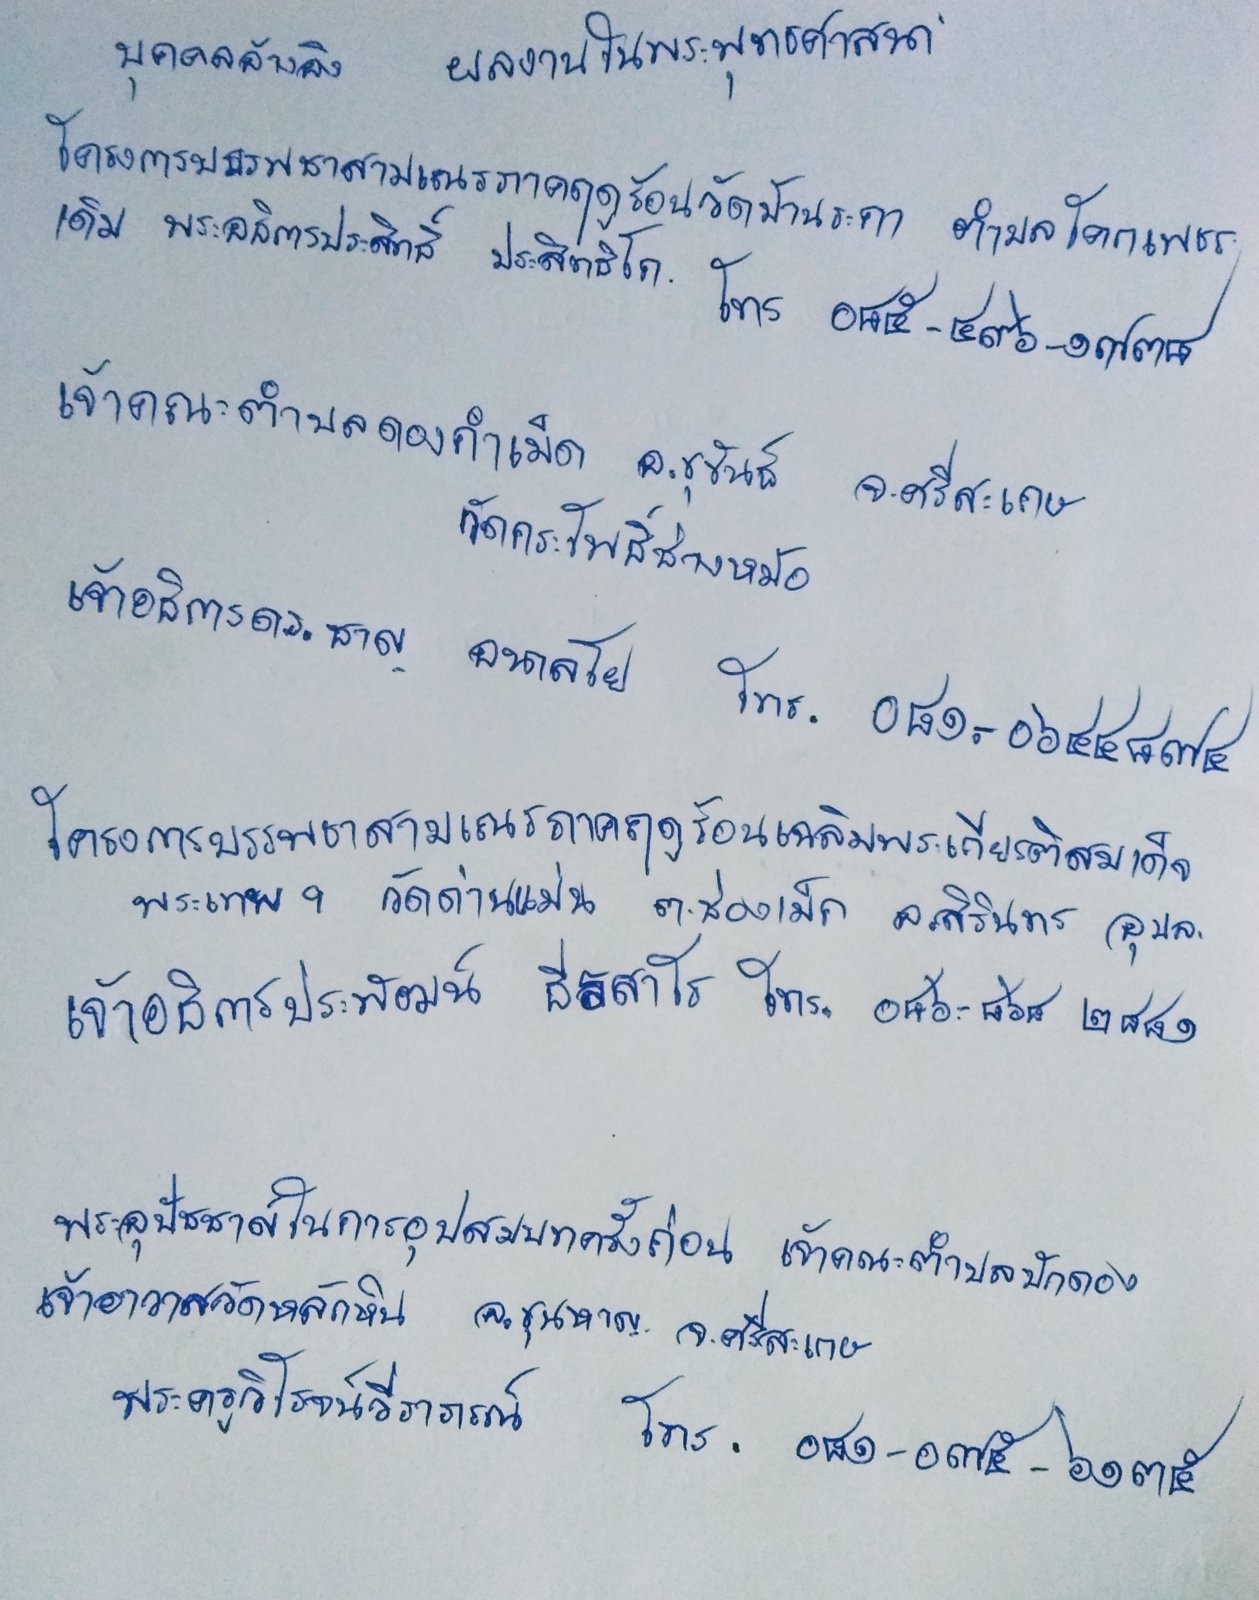 บุคคลอ้างอิง ผลงานในพระพุทธศาสนา
โครงการบรรพชาสามเณรภาคฤดูร้อนวัดบ้านระกา ตำบลโคกเพชร
เดิม พระอธิการประสิทธิ์ ประสิทธิโก. โทร ๐๘๕-๔๙๖-๑๗๓๘
เจ้าคณะตำบลดองกำเม็ด อ.ขุขันธ์ จ.ศรีสะเกษ
วัดกระโพธิ์ช่างหม้อ
เจ้าอธิการดร.ชาญ อนาลโย โทร. ๐๘๑-๐๖๕๔๘๗๕
โครงการบรรพชาสามเณรภาคฤดูร้อนเฉลิมพระเกียรติสมเด็จ
พระเทพฯ วัดด่านแม่น ต.ช่องเม็ก อ.สิรินธร อุบล.
เจ้าอธิการประพัฒน์ โทร. ๐๘๖-๘๖๘ ๒๘๘๑
พระอุปัชชาล์ในการอุปสมบทครั้งก่อน เจ้าคณะตำบลบักดอง
เจ้าอาวาสวัดหลักหิน อ.ขุนหาญ จ.ศรีสะเกษ
พระครูวิโรจน์วีราภรณ์ โทร. ๐๘๑-๐๗๕-๖๑๓๕